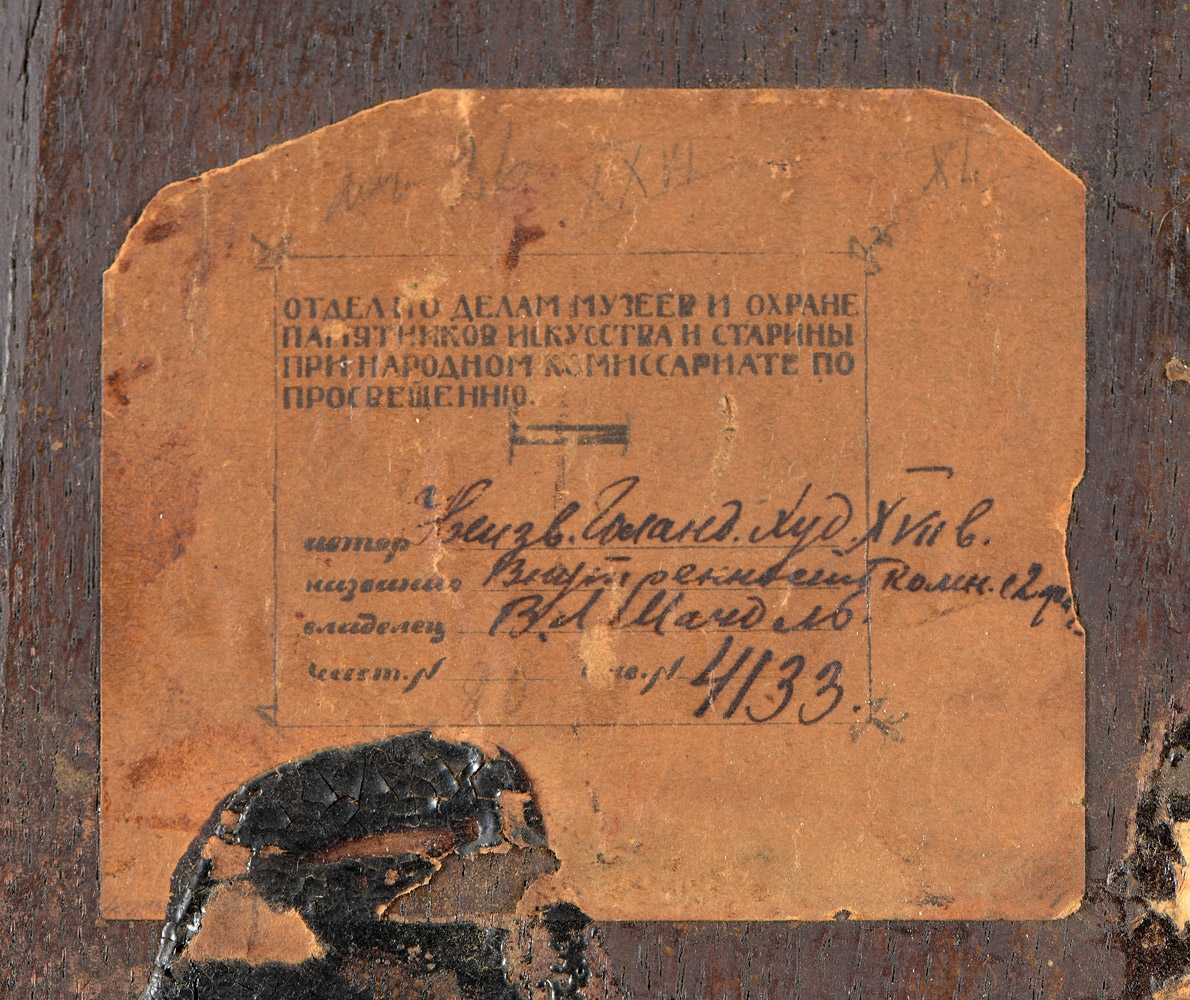 26 XXVI XL
ОТДЕЛ ПО ДЕЛАМ МУЗЕЕВ И ОХРАНЕ
ПАМЯТНИКОВ ИСКУССТВА И СТАРИНЫ
ПРИ НАРОДНОМ КОМИССАРИАТЕ ПО
ПРОСВЕЩЕНИЮ.
автор Неизв. Голанд. Худ. XVII в.
название Внутренность комн. с 2 фи.
владелец В. Л.
конст. № 20 инв. № 4133.